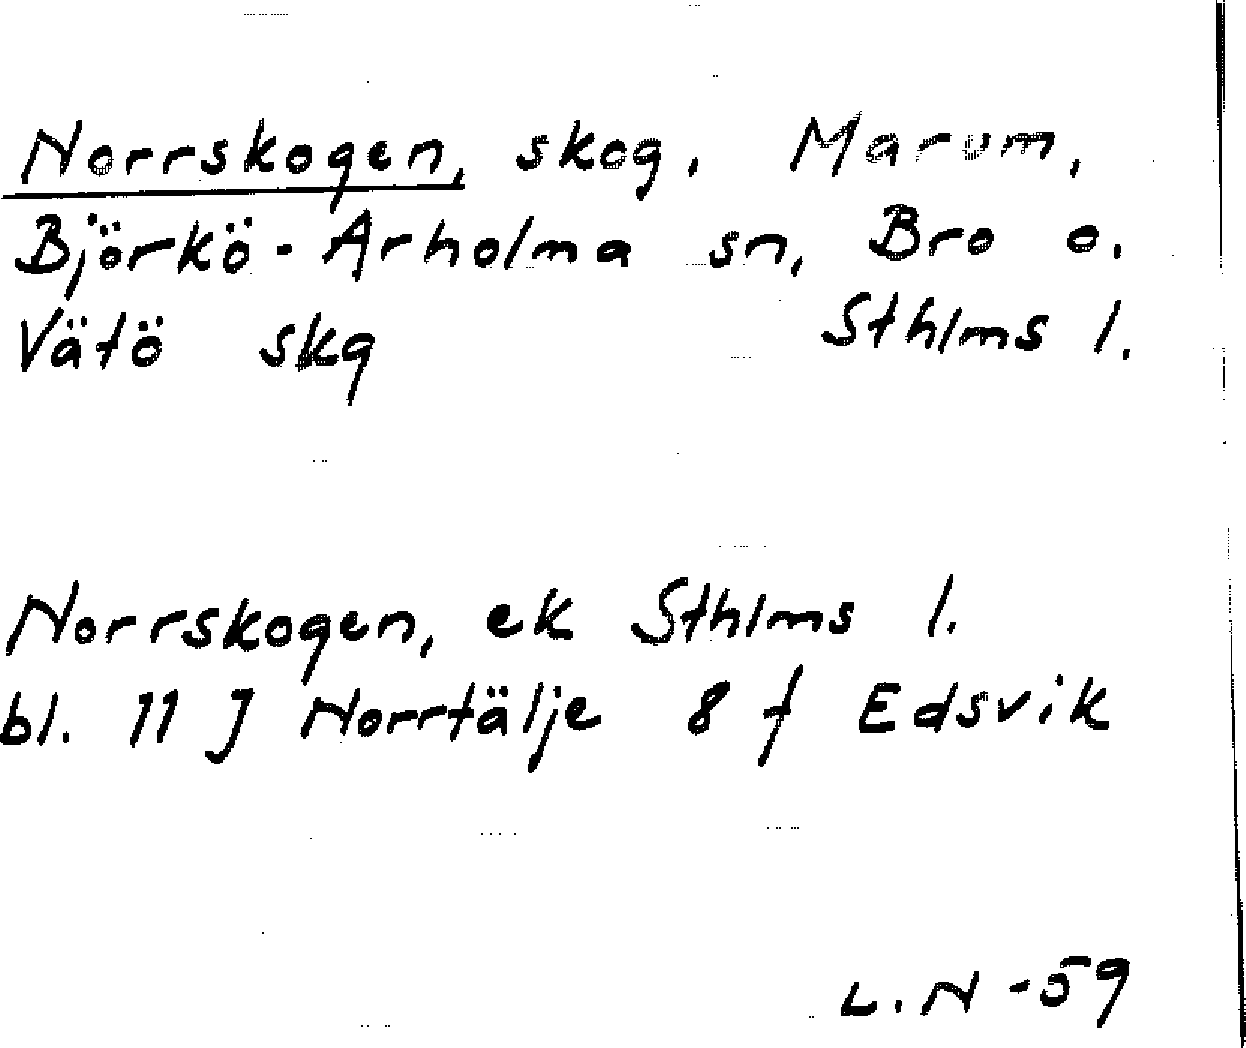 Norrskogen, skog. Marum.
Björkö-Arholma sn, Bro o.
Vätö skg Sthlms l.
Norrskogen, ek Sthlms l.
bl. 11 J Norrtälje 8 f Edsvik
L. N -59